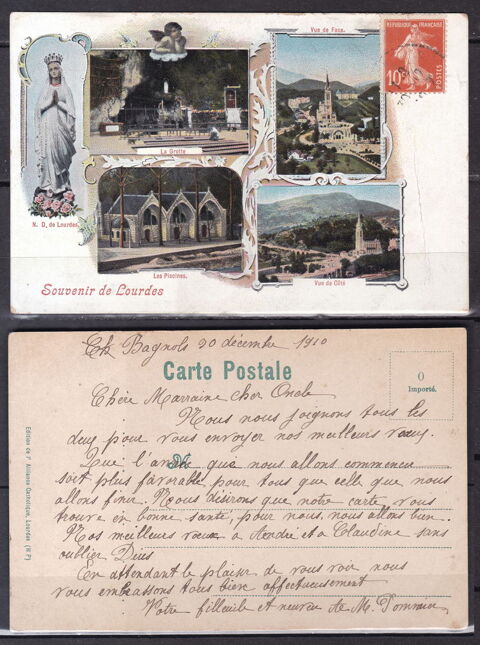 Vue de Face.
REPUBLIQUE FRANÇAISE
10c
La Grotte
N. D. de Lourdes.
Les Piscines.
Vue de Côté
Souvenir de Lourdes
Ch Bagnols 20 décembre 1910
Carte Postale
0
Importé.
Chère Marraine cher Oncle
Nous nous joignons tous les
deux pour vous envoyer nos meilleurs vœux.
Que l'année que nous allons commencer
soit plus favorable pour tous que celle que nous
allons finir. Nous désirons que notre carte vous
trouve en bonne santé, pour nous, nous allons bien.
Nos meilleurs vœux a André et a Claudine sans
oublier Dius
En attendant le plaisir de vous voir nous
vous embrassons tous bien affectueusement
Votre filleule et neveu A. M. Pommier
Edition de l' Almanach Catholique, Lourdes (H P)